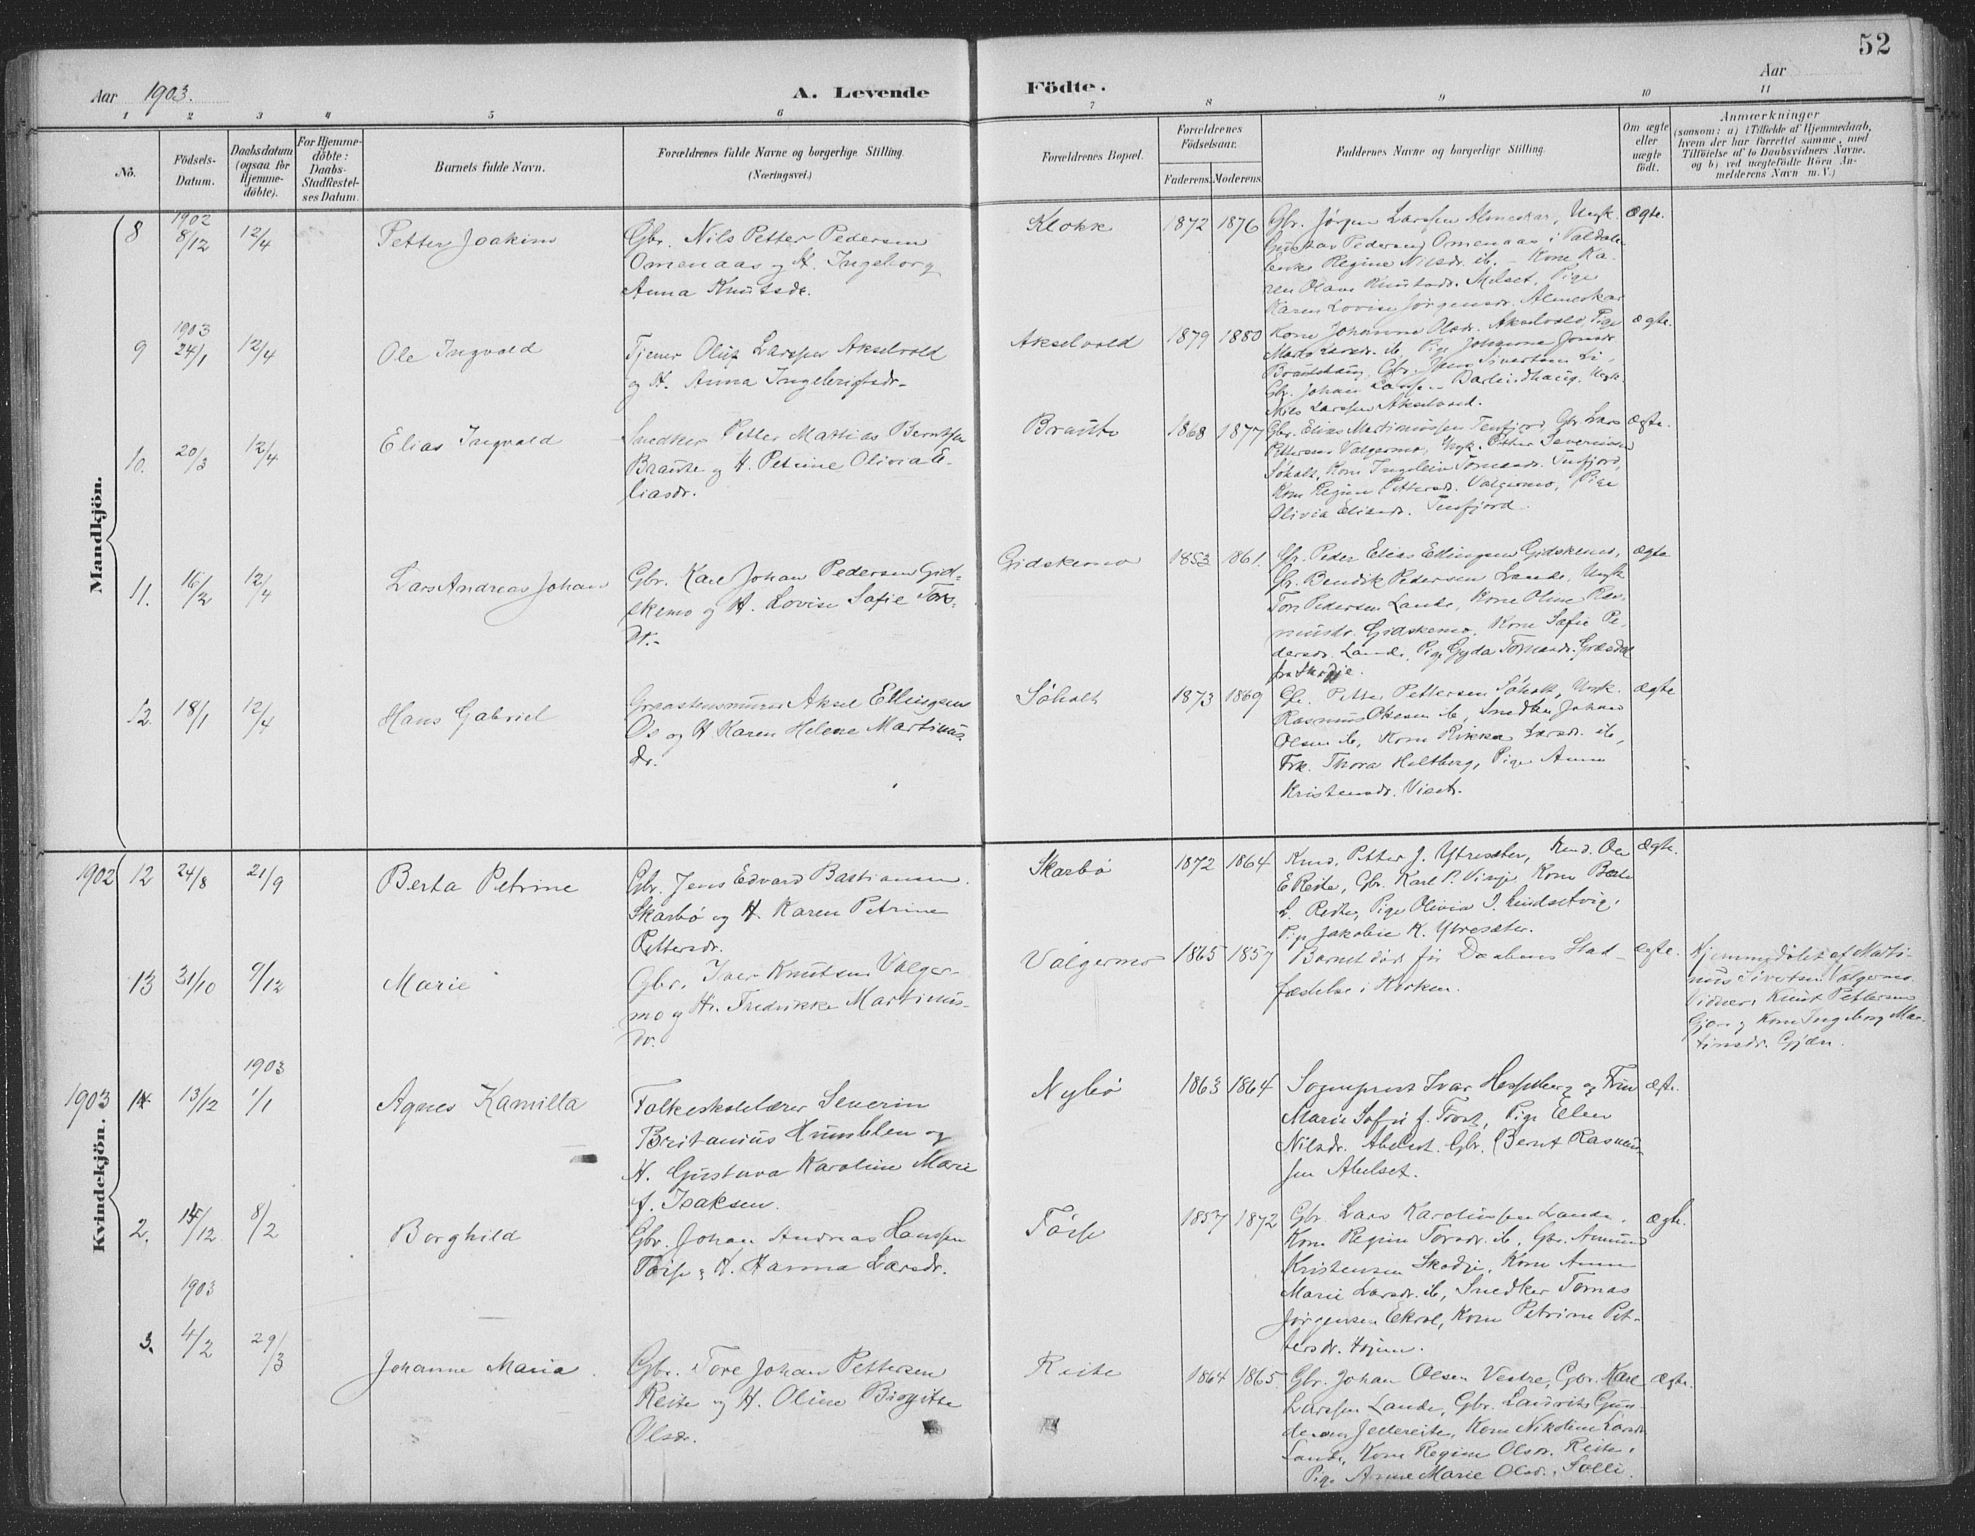 52
Aar 1903.
A. Levende
Födte.
Aar
1 2 3 4 5 6 7 8 9 10 11
No.
Födsels-
Datum.
Daabsdatum
(ogsaa for
Hjemme-
döbte).
For Hjemme-
döbte:
Daabs-
Stadfæstel-
ses Datum.
Barnets fulde Navn.
Forældrenes fulde Navne og borgerlige Stilling.
(Næringsvei.)
Forældrenes Bopæl.
Forældrenes
Födselsaar.
Faderens. Moderens.
Faddernes Navne og borgerlige Stilling.
Om ægte
eller
uægte
födt.
Anmærkninger
(saasom: a) i Tilfælde af Hjemmedaab,
hvem der har forrettet samme, med
Tilföielse af to Daabsvidners Navne,
og b) ved uægtefödte Börn An-
melderens Navn m. V.)
Mandkjön.
8
1902
8/12
12/4
Petter Joakim
Gbr. Nils Petter Pedersen
Omenaas og H. Ingeborg
Anna Knutsdr.
Klokk
1872 1876
Gbr. Jørgen Larssen Almeskar, Ungk.
Gustav Pedersen Omenaas i Valdal
Regine Nilsdr. ib. Kone Ka-
ren Olave Knutsdr. Melset, Pige
Karen Lovise Jørgensdr. Almeskar
ægte.
9
1903
24/1
12/4
Ole Ingvald
Tjener Oluf Larssen Akselvold
og H. Anna Ingebrigtsdr.
Akselvold
1879 1880
Kone Johanne Olsdr. Akselvold, Pige
Larsdr. ib, Pige Johanna
Gbr. Sivertsen Li,
Gbr. Johan Ungk.
Nils Larssen Akselvold.
ægte.
10.
20/3
12/4
Elias Ingvald
Snedker Petter Mattias Berntsen
Braute og H. Petrine Olivia E-
liasdr.
Braute
1868 1877
Gbr. Elias Martinussen Tusfjord, Gbr. Lars
Pettersen Valgermo, Ungk. Petter Severinsen
Søholt, Kone Ingeleiv Tomasdr. Tusfjord,
Kone Regine Pettersdr. Valgermo, Pige
Olivia Eliasdr. Tusfjord.
ægte.
11.
16/2
12/4
Lars Andreas Johan
Gbr. Karl Johan Pedersen Gid-
skemo og H. Lovise Sofie Tors-
dr.
Gidskemo
1853 1861.
Gbr. Peder Elias Ellingsen Gidskemo,
Gbr. Bendik Pedersen Lande, Ungk
Tore Pedersen Lande, Kone Oline Ras-
musdr. Gidskemo, Kone Sofie Pe-
dersdr. Lande, Pige Gyda Tomasdr. Græsdal
fra Skodje.
ægte
12.
18/1
12/4
Hans Gabriel
Graastensmurer Aksel Ellingsen
Os og H Karen Helene Martinus-
dr.
Søholt
1873 1869
Gbr. Petter Pettersen Søholt, Ungk.
Rasmus Olsen ib, Snedker Johan
Olsen ib, Kone Rikka Larsdr. ib,
Frk. Thora Holtberg, Pige Anna
Kristensdr. Viset.
ægte
Kvindekjön.
1902
12
24/8
21/9
Berta Petrine
Gbr. Jens Edvard Bastiansen
Skarbø og H. Karen Petrine
Pettersdr.
Skarbø
1872 1864
Petter J. Ytresæter, Ole
E Reite, Gbr. Karl P. Vinje, Kone Berte
L. Reite, Pige Olivia J. Lindsetvig,
Pige Jakobine K. Ytresæter.
ægte.
13
31/10
9/12
Marie
Gbr. Iver Knutsen Valger-
mo og H. Fredrikke Martinus-
dr.
Valgermo
1865 1857
Barnet døde før Daabens Stad-
fæstelse i Kirken.
ægte.
Hjemmedøbt af Marti-
nus Sivertsen Valgermo.
Vidner: Knut Pettersen
Gjære og Kone Ingeborg Mar-
tinusdr. Gjære.
1903
14
13/12
1903
1/1
Agnes Kamilla
Folkeskolelærer Severin
Britanius Humblen og
H. Gustava Karoline Marie
f. Isaksen.
Nybø
1863 1864
Sogneprest Ivar Hesselberg og Frue
Marie Sofie f. Trost, Pige Ellen
Nilsdr. Abelset. Gbr. Bernt Rasmus-
sen Abelset.
ægte.
2.
15/12
8/2
Borghild
Gbr. Johan Andreas Hanssen
Tøsse og H. Hanna Larsdr.
Tøsse
1857 1872
Gbr. Lars Karolussen Lande,
Kone Regine Torsdr. ib, Gbr. Amund
Kristensen Skodje, Kone Anne
Marie Larsdr. ib, Snedker Tomas
Jørgensen Ekrol, Kone Petrine Pet-
tersdr. Hjem.
ægte.
3.
1903
4/2
29/3
Johanne Maria
Gbr. Tore Johan Pettersen
Reite og H. Oline Birgitte
Olsdr.
Reite
1864 1865
Gbr. Johan Olsen Vestre, Gbr. Karl
Larssen Lande, Gbr. Laurits Gun-
dersen Jeltereite, Kone Nikoline Larsdr.
Lande, Kone Regine Olsdr. Reite,
Pige Anne Marie Olsdr. Solli.
ægte.